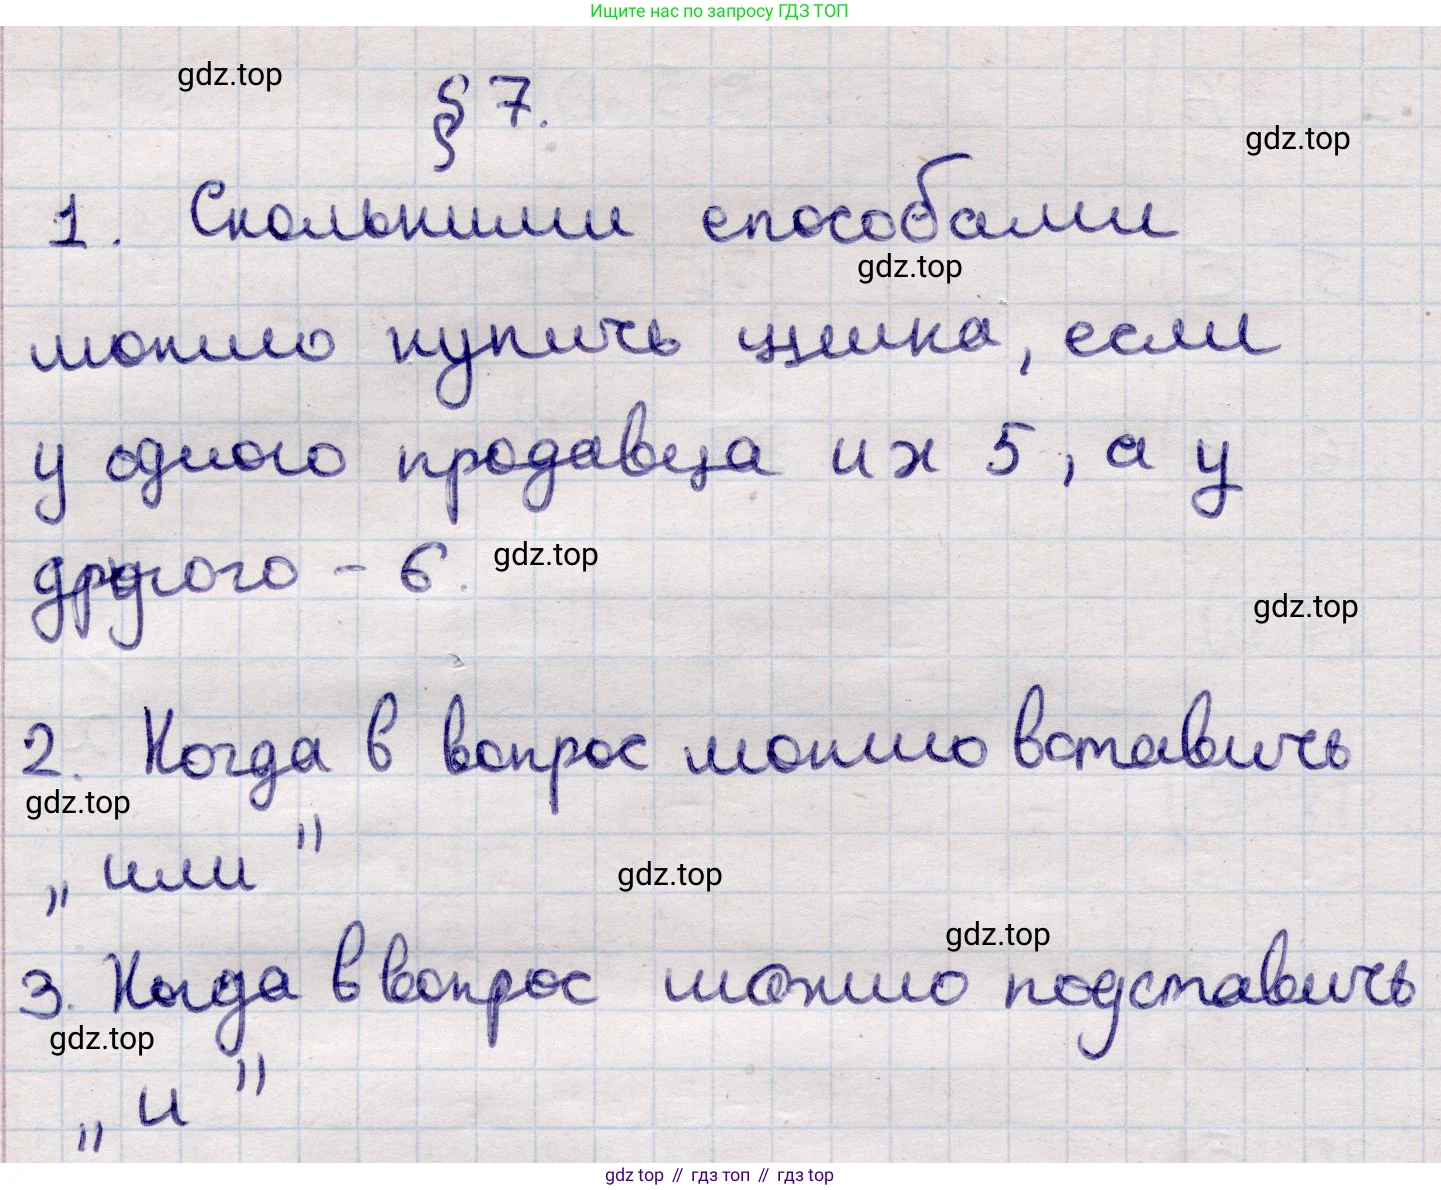 Ищите нас по запросу ГДЗ ТОП
gdz.top
§ 7.
gdz.top
1. Сколькими способами
gdz.top
можно купить щенка, если
у одного продавца их 5, а у
другого - 6.
gdz.top
gdz.top
2. Когда в вопрос можно вставить
gdz.top
„ или "
gdz.top
gdz.top
3. Когда в вопрос можно подставить
gdz.top
„ и "
gdz top // гдз топ // гдз top